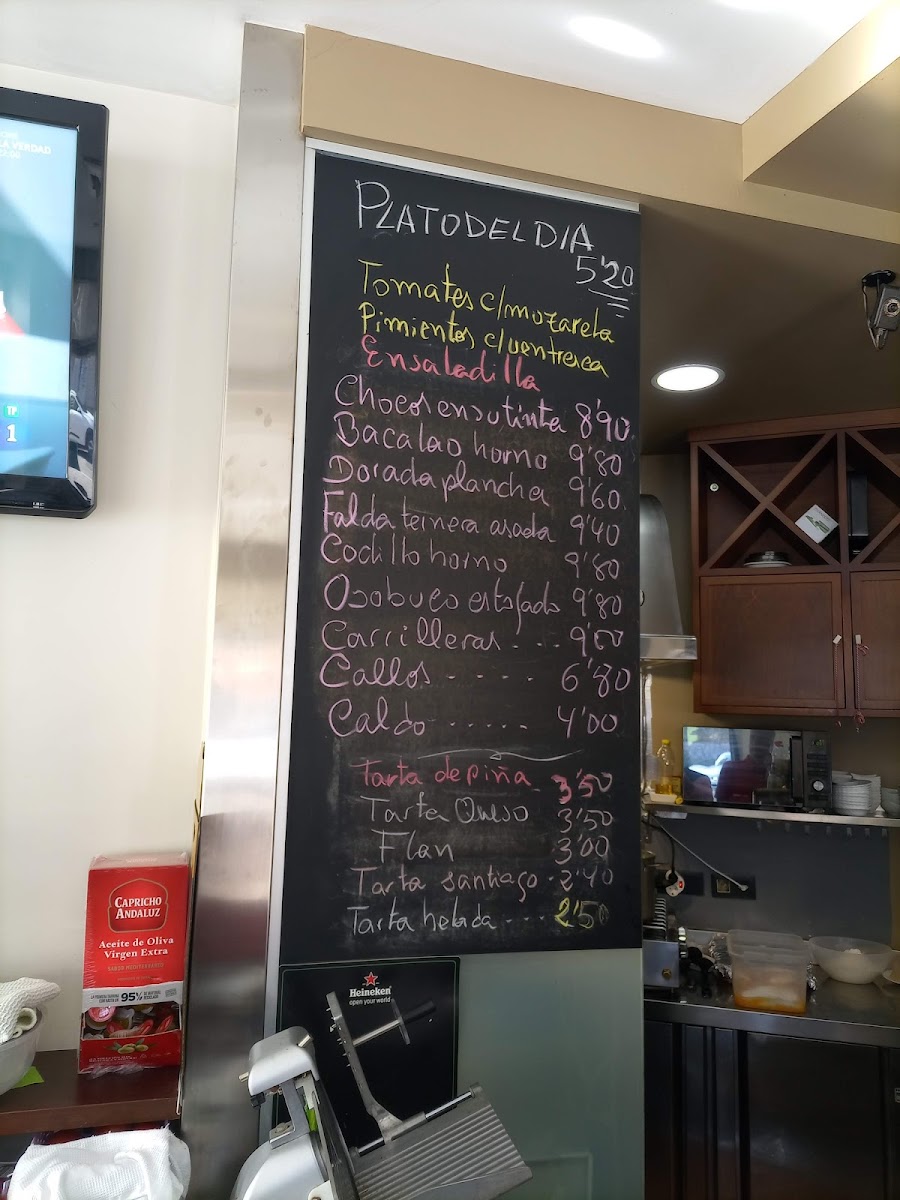 LA VERDAD
TP
1
PLATO DEL DIA
5'20
Tomates c/mozarela
Pimientos c/ventresca
Ensaladilla
Chocos en su tinta 8'90
Bacalao horno 9'80
Dorada plancha 9'60
Falda ternera asada 9'40
Codillo horno 9'80
Osobuco estofado 9'80
Carrilleras . . . 9'00
Callos . . . . . 6'80
Caldo . . . . . . 4'00
Tarta de piña 3'50
Tarta Queso 3'50
Flan 3'00
Tarta santiago . 2'90
Tarta helada . . . . 2'50
CAPRICHO
ANDALUZ
Aceite de Oliva
Virgen Extra
95%
Heineken
open your world